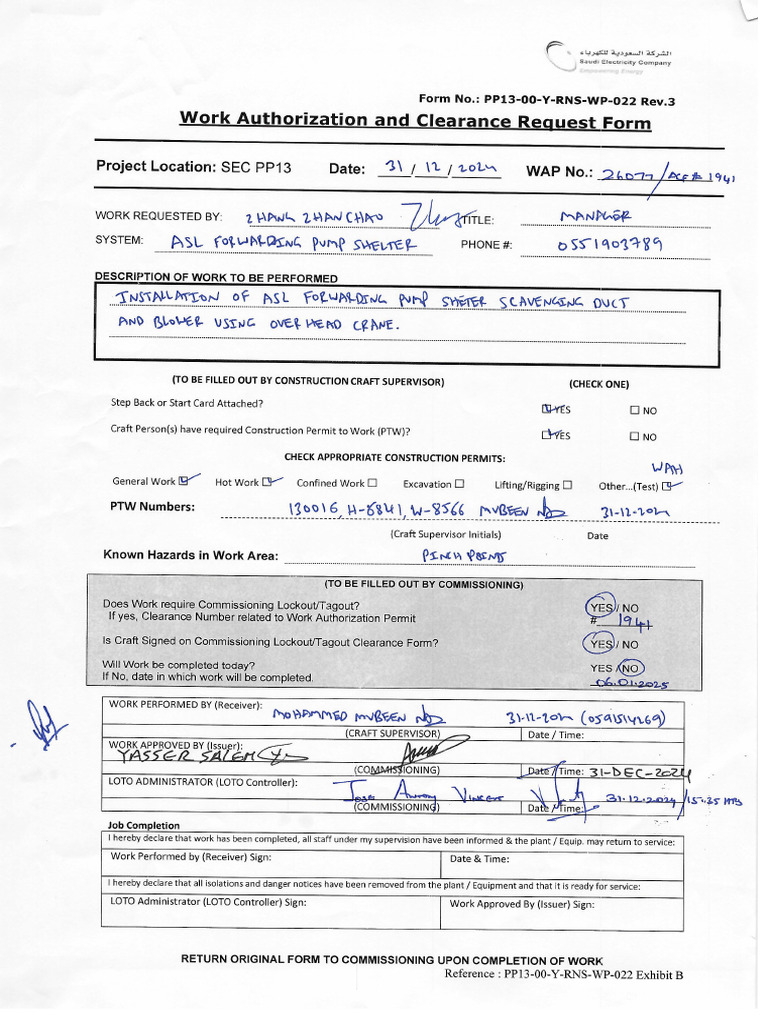 الشركة السعودية للكهرباء
Saudi Electricity Company
Empowering Energy
Form No.: PP13-00-Y-RNS-WP-022 Rev.3
Work Authorization and Clearance Request Form
Project Location: SEC PP13 Date: 31 / 12 / 2024 WAP No.: 26077/ACF# 1941
WORK REQUESTED BY: ZHANG ZHANCHAO TITLE: MANAGER
SYSTEM: ASL FORWARDING PUMP SHELTER PHONE #: 0551903789
DESCRIPTION OF WORK TO BE PERFORMED
INSTALLATION OF ASL FORWARDING PUMP SHETER SCAVENGING DUCT
AND BLOWER USING OVERHEAD CRANE.
(TO BE FILLED OUT BY CONSTRUCTION CRAFT SUPERVISOR) (CHECK ONE)
Step Back or Start Card Attached? ☑ YES ☐ NO
Craft Person(s) have required Construction Permit to Work (PTW)? ☑ YES ☐ NO
CHECK APPROPRIATE CONSTRUCTION PERMITS:
WAH
General Work ☑ Hot Work ☑ Confined Work ☐ Excavation ☐ Lifting/Rigging ☐ Other...(Test) ☑
PTW Numbers: 130016, H-8841, W-8566 MUBEEN 31-12-2024
(Craft Supervisor Initials) Date
Known Hazards in Work Area: PINCH POINTS
(TO BE FILLED OUT BY COMMISSIONING)
Does Work require Commissioning Lockout/Tagout? YES / NO
If yes, Clearance Number related to Work Authorization Permit # 1941
Is Craft Signed on Commissioning Lockout/Tagout Clearance Form? YES / NO
Will Work be completed today? YES / NO
If No, date in which work will be completed. 06.01.2025
WORK PERFORMED BY (Receiver): MOHAMMED MUBEEN 31-12-2024 (0591514269)
(CRAFT SUPERVISOR) Date / Time:
WORK APPROVED BY (Issuer):
YASSER SALEH
(COMMISSIONING) Date / Time: 31-DEC-2024
LOTO ADMINISTRATOR (LOTO Controller): Jose Antony Vincent 31.12.2024/15.35 HRS
(COMMISSIONING) Date / Time:
Job Completion
I hereby declare that work has been completed, all staff under my supervision have been informed & the plant / Equip. may return to service:
Work Performed by (Receiver) Sign: Date & Time:
I hereby declare that all isolations and danger notices have been removed from the plant / Equipment and that it is ready for service:
LOTO Administrator (LOTO Controller) Sign: Work Approved By (Issuer) Sign:
RETURN ORIGINAL FORM TO COMMISSIONING UPON COMPLETION OF WORK
Reference : PP13-00-Y-RNS-WP-022 Exhibit B